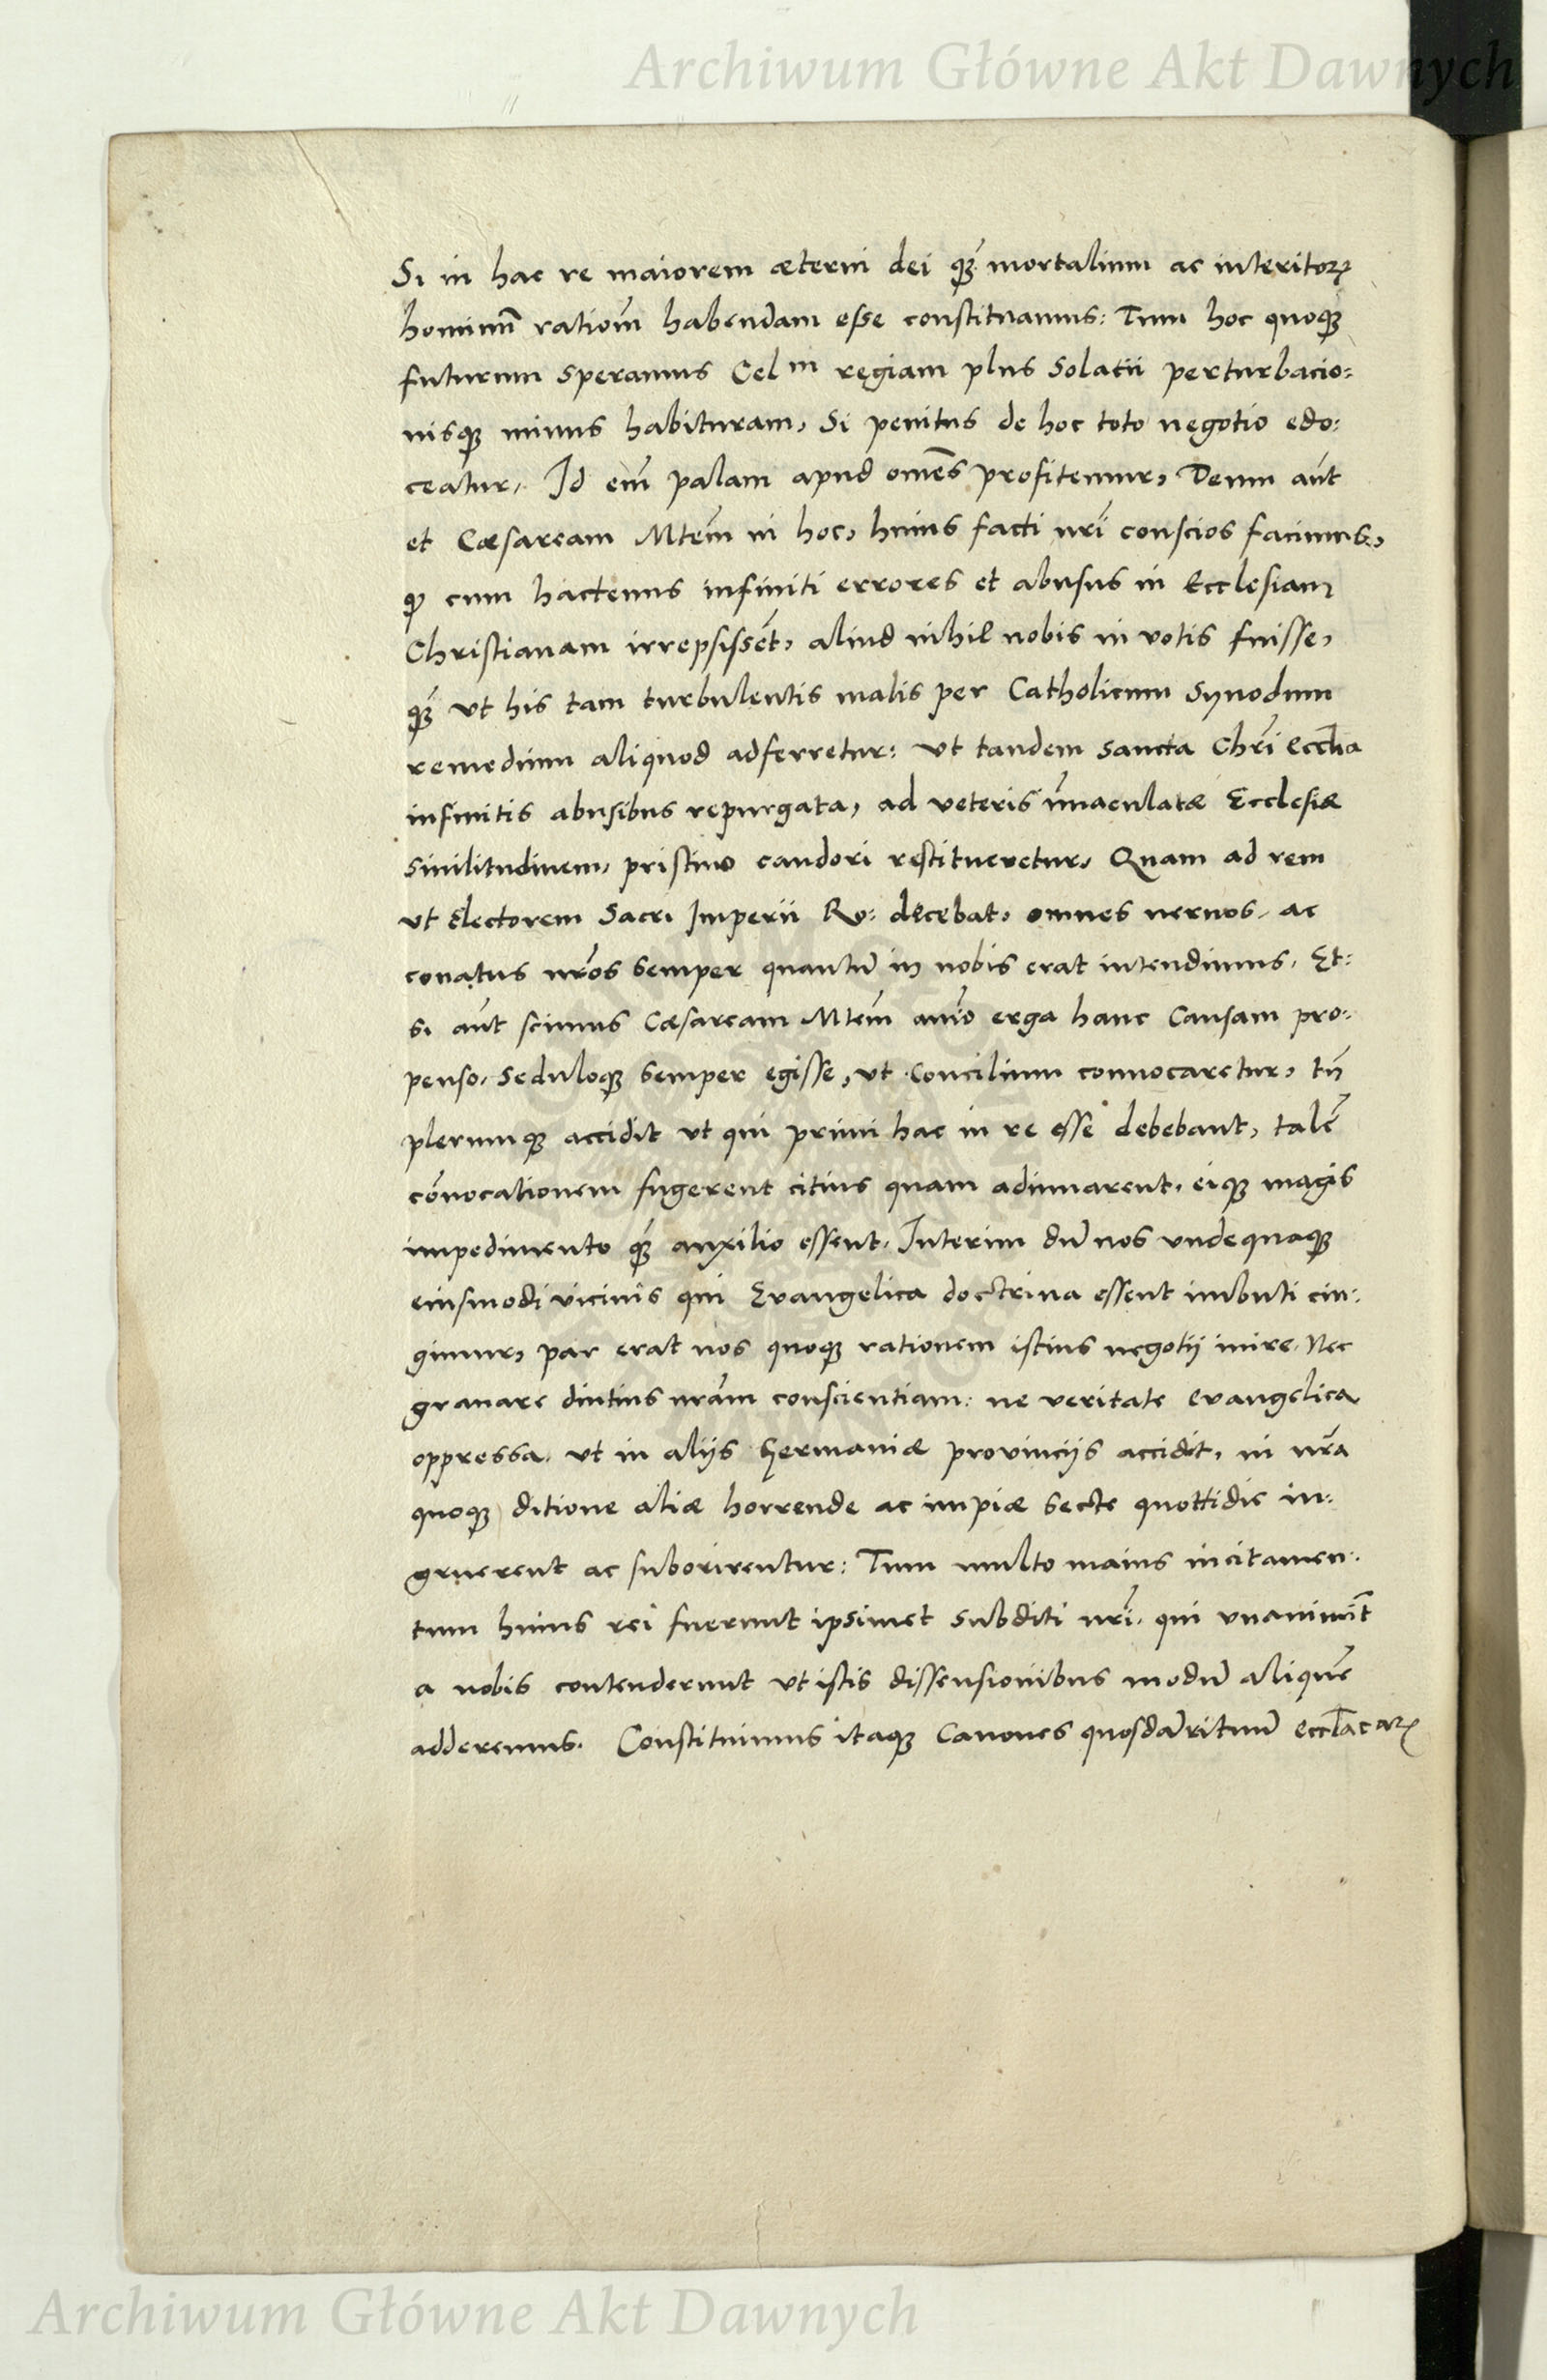 Archiwum Główne Akt Dawnych
Si in hac re maiorem æterni dei qꝫ̃ mortalium ac interitorꝝ
hominũ ratiom̃ habendam esse constituamus: Tum hoc quoqꝫ
futurum speramus Cel m regiam plus solatii perturbacio:
nisqꝫ minus habituram, Si penitus de hoc toto negotio edo:
ceatur, Id em̃ palam apud omẽs profitemur, Deum aũt
et Cæsaream Mtem̃ in hoc, huius facti nr̃i conscios facimus,
qꝫ cum hactenus infiniti errores et abusus in Ecclesiam
Christianam irrepsissẽt, aliud nihil nobis in votis fuisse,
qꝫ̃ vt his tam turbulentis malis per Catholicum Synodum
remedium aliquod adferretur: vt tandem sancta Chr̃i Eccl̃ia
infinitis abusibus repurgata, ad veteris im̃aculatæ Ecclesiæ
similitudinem, pristino candori restitueretur, Quam ad rem
vt Electorem Sacri Imperii Ro: decebat, omnes neruos, ac
conatus nr̃os semper quantũ in nobis erat intendimus, Et:
si aũt scimus Cæsaream Mtem̃ anĩo erga hanc Causam pro:
penso, seduloqꝫ semper egisse, vt Concilium conuocaretur, tñ
plerumqꝫ accidit vt qui primi hac in re esse debebant, talẽ
cõuocationem fugerent citius quam adiuuarent, eiqꝫ magis
impedimento qꝫ̃ auxilio essent, Interim dũ nos vndequaqꝫ
eiusmodi vicinis qui Evangelica doctrina essent imbuti cin:
gimur, par erat nos quoqꝫ rationem istius negotij inire, Nec
grauare diutius nr̃am conscientiam: ne veritate evangelica
oppressa, vt in aliis Germaniæ provinciis accidit, in nr̃a
quoqꝫ ditione aliæ horrende ac impiæ secte quottidie in:
gruerent ac suborirentur: Tum multo maius incitamen:
tum huius rei fuerunt ipsimet subditi nr̃i, qui vnanimit̃
a nobis contenderunt vt istis dissensionibus modũ aliquẽ
adderemus. Constituimus itaqꝫ Canones quosdã rituũ eccl̃acarꝝ
Archiwum Główne Akt Dawnych